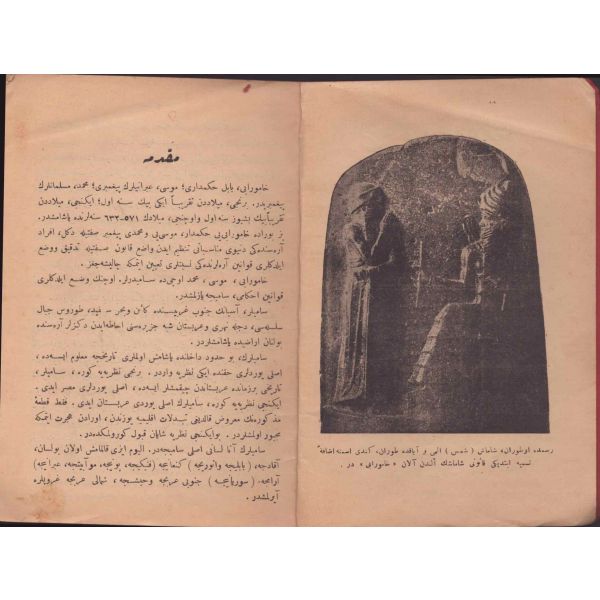 مقدمه
خامورابی، بابل حکمداری؛ موسی، عبرانیلرك پیغمبری؛ محمد، مسلمانلرك
پیغمبریدر. برنجی، میلاددن تقریباً ایکی بیك سنه اول؛ ایکنجی، میلاددن
تقریباً بیك بشیوز سنه اول و اوچنجی، میلادك ٥٧١-٦٣٢ سنه‌لرنده یاشامشدر.
بز بوراده خامورابی‌یی حکمدار، موسی‌یی و محمدی پیغمبر صفتیله دکل، افراد
آره‌سنده‌کی دنیوی مناسباتی تنظیم ایدن واضع قانون صفتیله تدقیق و وضع
ایلدکلری قوانین آره‌لرنده‌کی نسبتلری تعیین ایتمکه چالیشه‌جغز.
خامورابی، موسی، محمد اوچی‌ده سامیدرلر. اوچنك وضع ایلدکلری
قوانین احکامی، سامیجه یازلمشدر.
سامیلر، آسیانك جنوب غربیسنده کائن و بحر سفید، طوروس جبال
سلسله‌سی، دجله نهری و عربستان شبه جزیره‌سنی احاطه‌ایدن دکزلر آره‌سنده
بولنان اراضیده یاشامشلردر.
سامیلرك، بو حدود داخلنده یاشامش اولملری تاریخجه معلوم ایسه‌ده،
اصلی یوردلری حقنده ایکی نظریه واردر. برنجی نظریه‌یه کوره، سامیلر،
تاریخی برزمانده عربستاندن چیقمشلر ایسه‌ده، اصلی یوردلری مصر ایدی.
ایکنجی نظریه‌یه کوره، سامیلرك اصلی یوردی عربستان ایدی. فقط قطعهٔ
مذکوره‌نك معروض قالدیغی تبدلات اقلیمیه یوزندن، اورادن هجرت ایتمکه
مجبور اولمشلردر. بو ایکنجی نظریه شایان قبول کورولمکده‌در.
سامیلرك آنا لسانی اصلی سامیجه‌در. الیوم ایزی قالمامش اولان بولسان،
آقادجه، (بابلیجه و آثوریجه) کنعانیجه (فنیکیجه، بونیجه، موآبیتجه، عبرانیجه)
آرامجه، (سوریانیجه) جنوبی عربجه و حبشیجه، شمالی عربجه غروپلره
آیرلمشدر.
رسمده اوطوران، شاماش (شمس) الهی و آیاقده طوران، کندی اسمنه اضافةً
تسمیه ایتدیکی قانونی شاماشك الندن آلان «خامورابی» در.